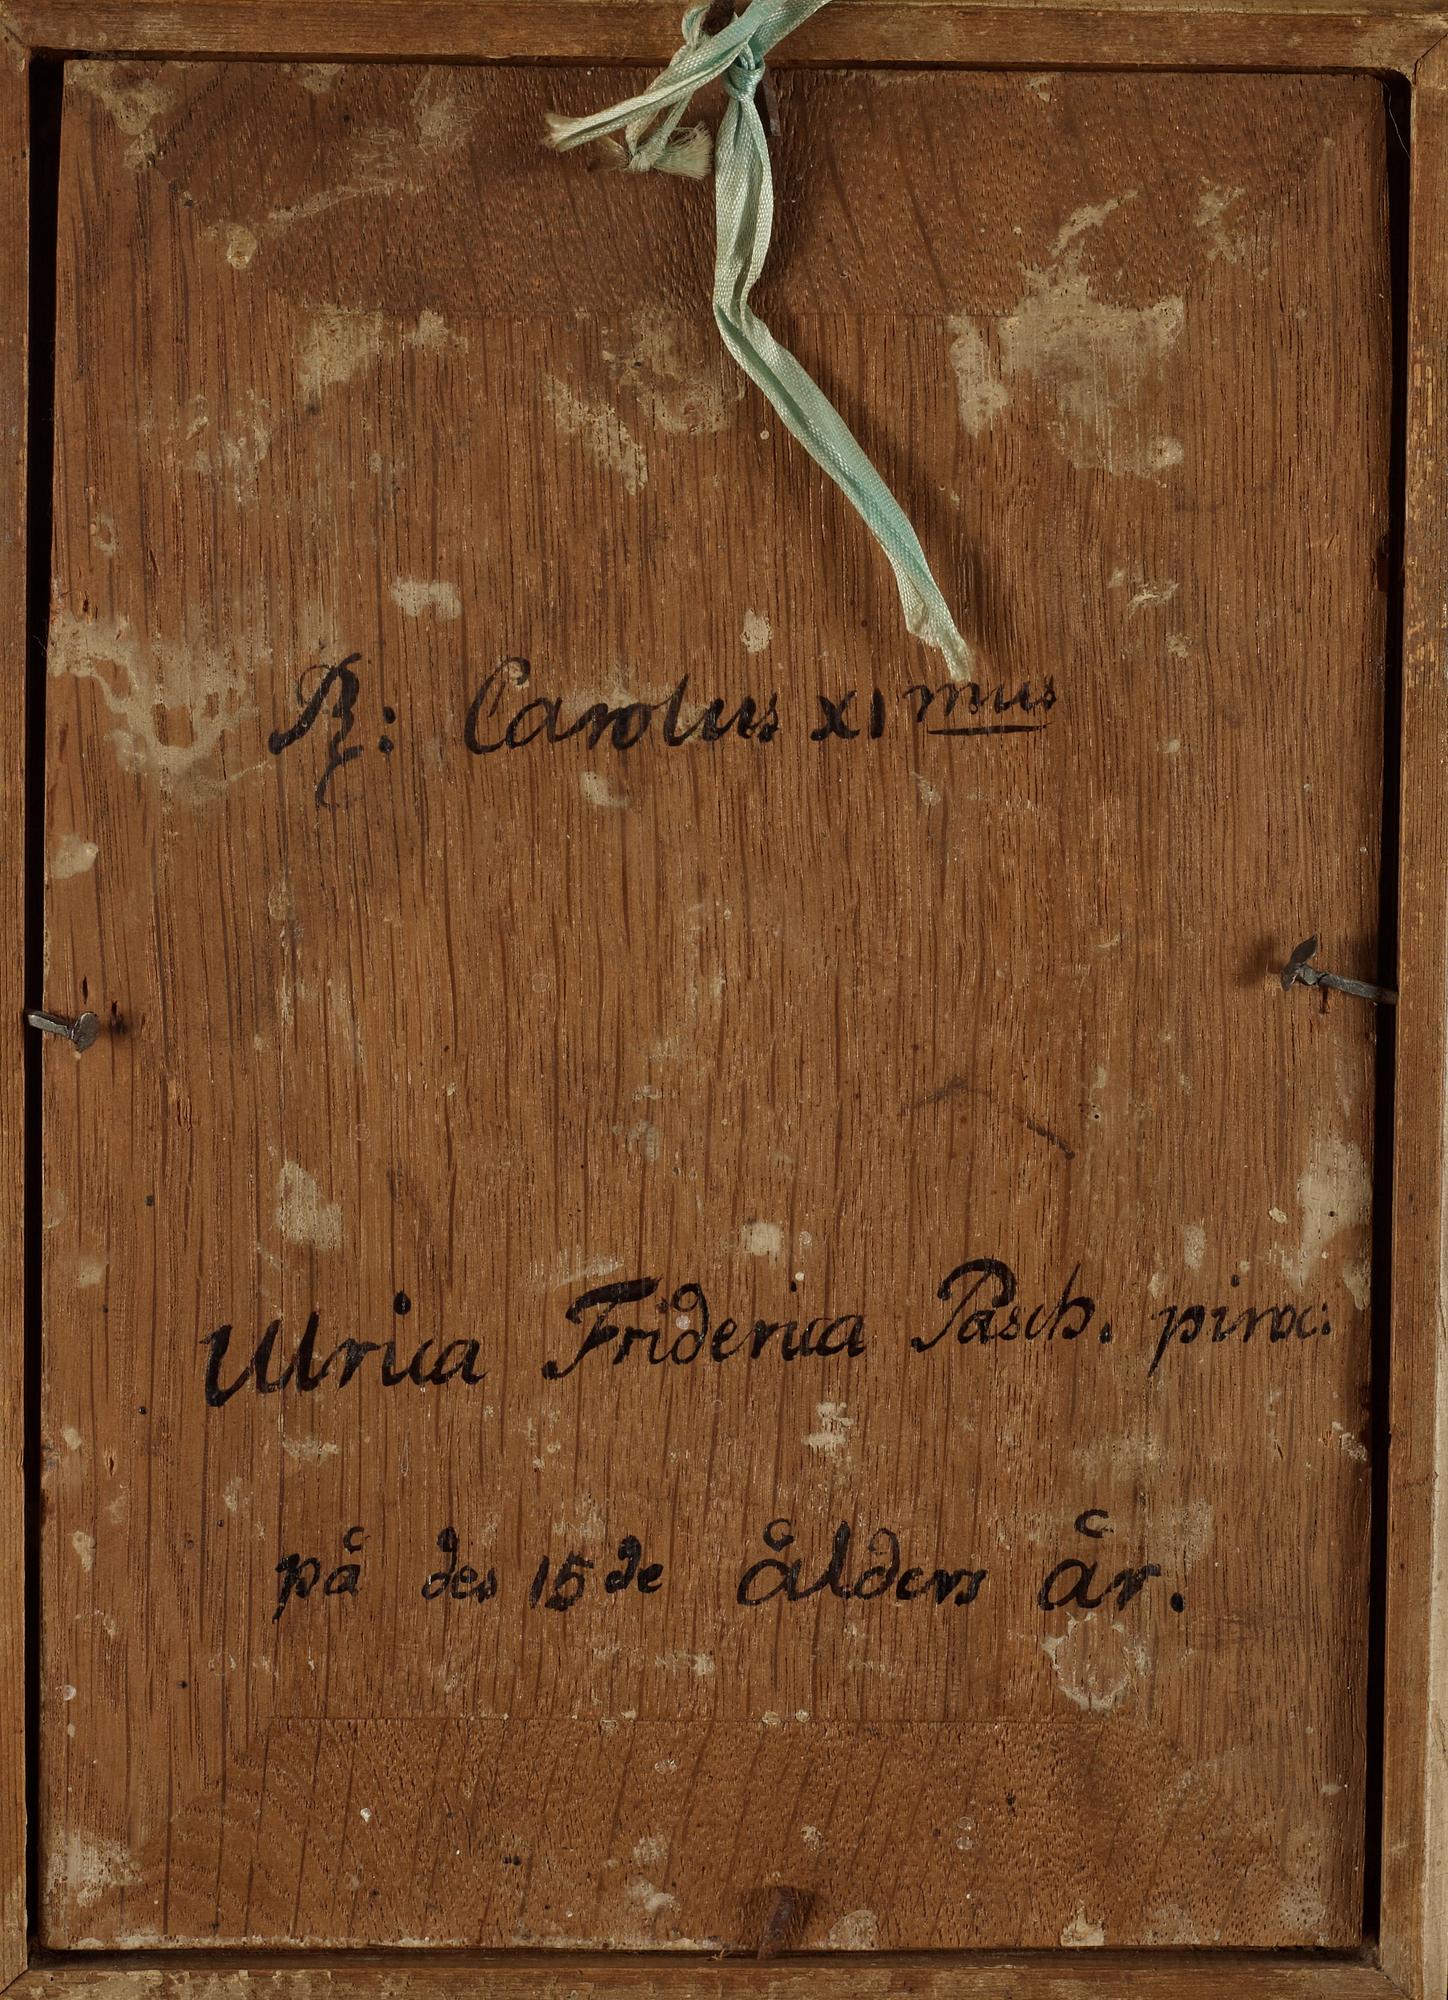 R: Carolus XI mus
Ulrica Friderica Pasch. pinx:
på des 15de ålders år.